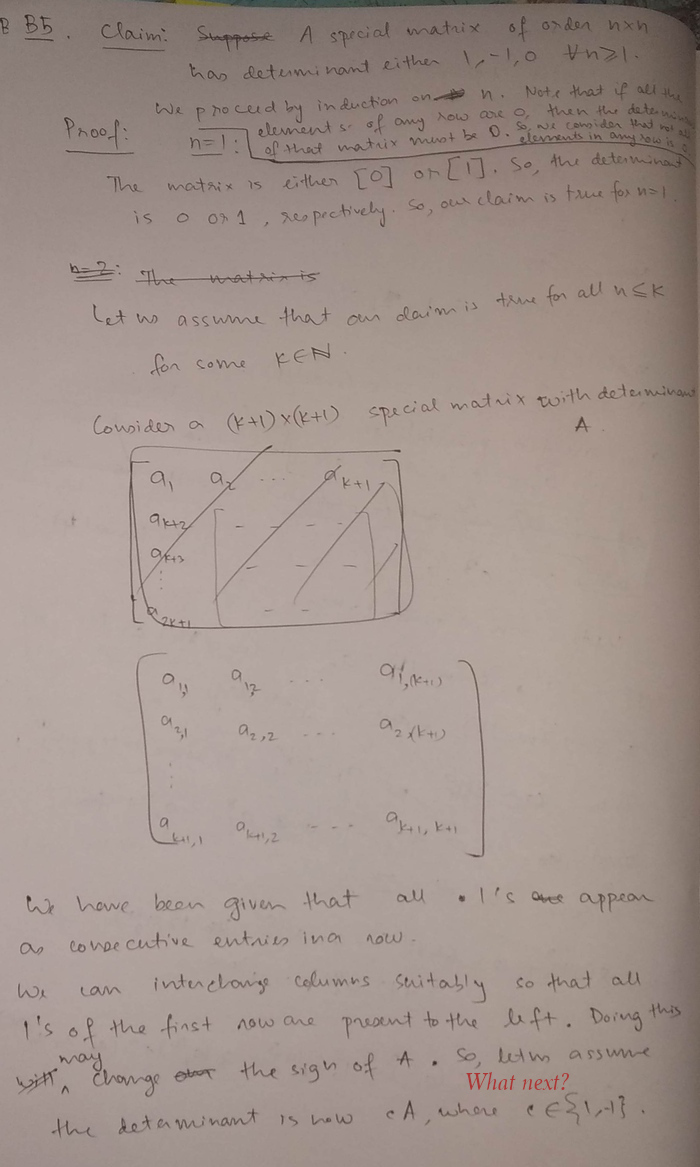 B B5. Claim: Suppose A special matrix of order n×n
has determinant either 1, -1, 0 ∀ n⩾1.
Proof: We proceed by induction on n. Note that if all the
n=1: elements of any row are 0, then the determinant
of that matrix must be 0. So, we consider that not all
elements in any row is 0
The matrix is either [0] or [1]. So, the determinant
is 0 or 1, respectively. So, our claim is true for n=1.
n=2: The matrix is
Let us assume that our claim is true for all n≤k
for some k∈ℕ.
Consider a (k+1)×(k+1) special matrix with determinant
A.
a₁ a₂ ... aₖ₊₁
aₖ₊₂ - - - -
aₖ₊₃ - - -
⋮
a₂ₖ₊₁ - -
a₁,₁ a₁,₂ ... a₁,(k+1)
a₂,₁ a₂,₂ ... a₂,(k+1)
⋮
aₖ₊₁,₁ aₖ₊₁,₂ --- aₖ₊₁,ₖ₊₁
We have been given that all 1's are appear
as consecutive entries in a row.
We can interchange columns suitably so that all
1's of the first row are present to the left. Doing this
will may change the sign of A. So, let us assume
What next?
the determinant is now cA, where c∈{1,-1}.